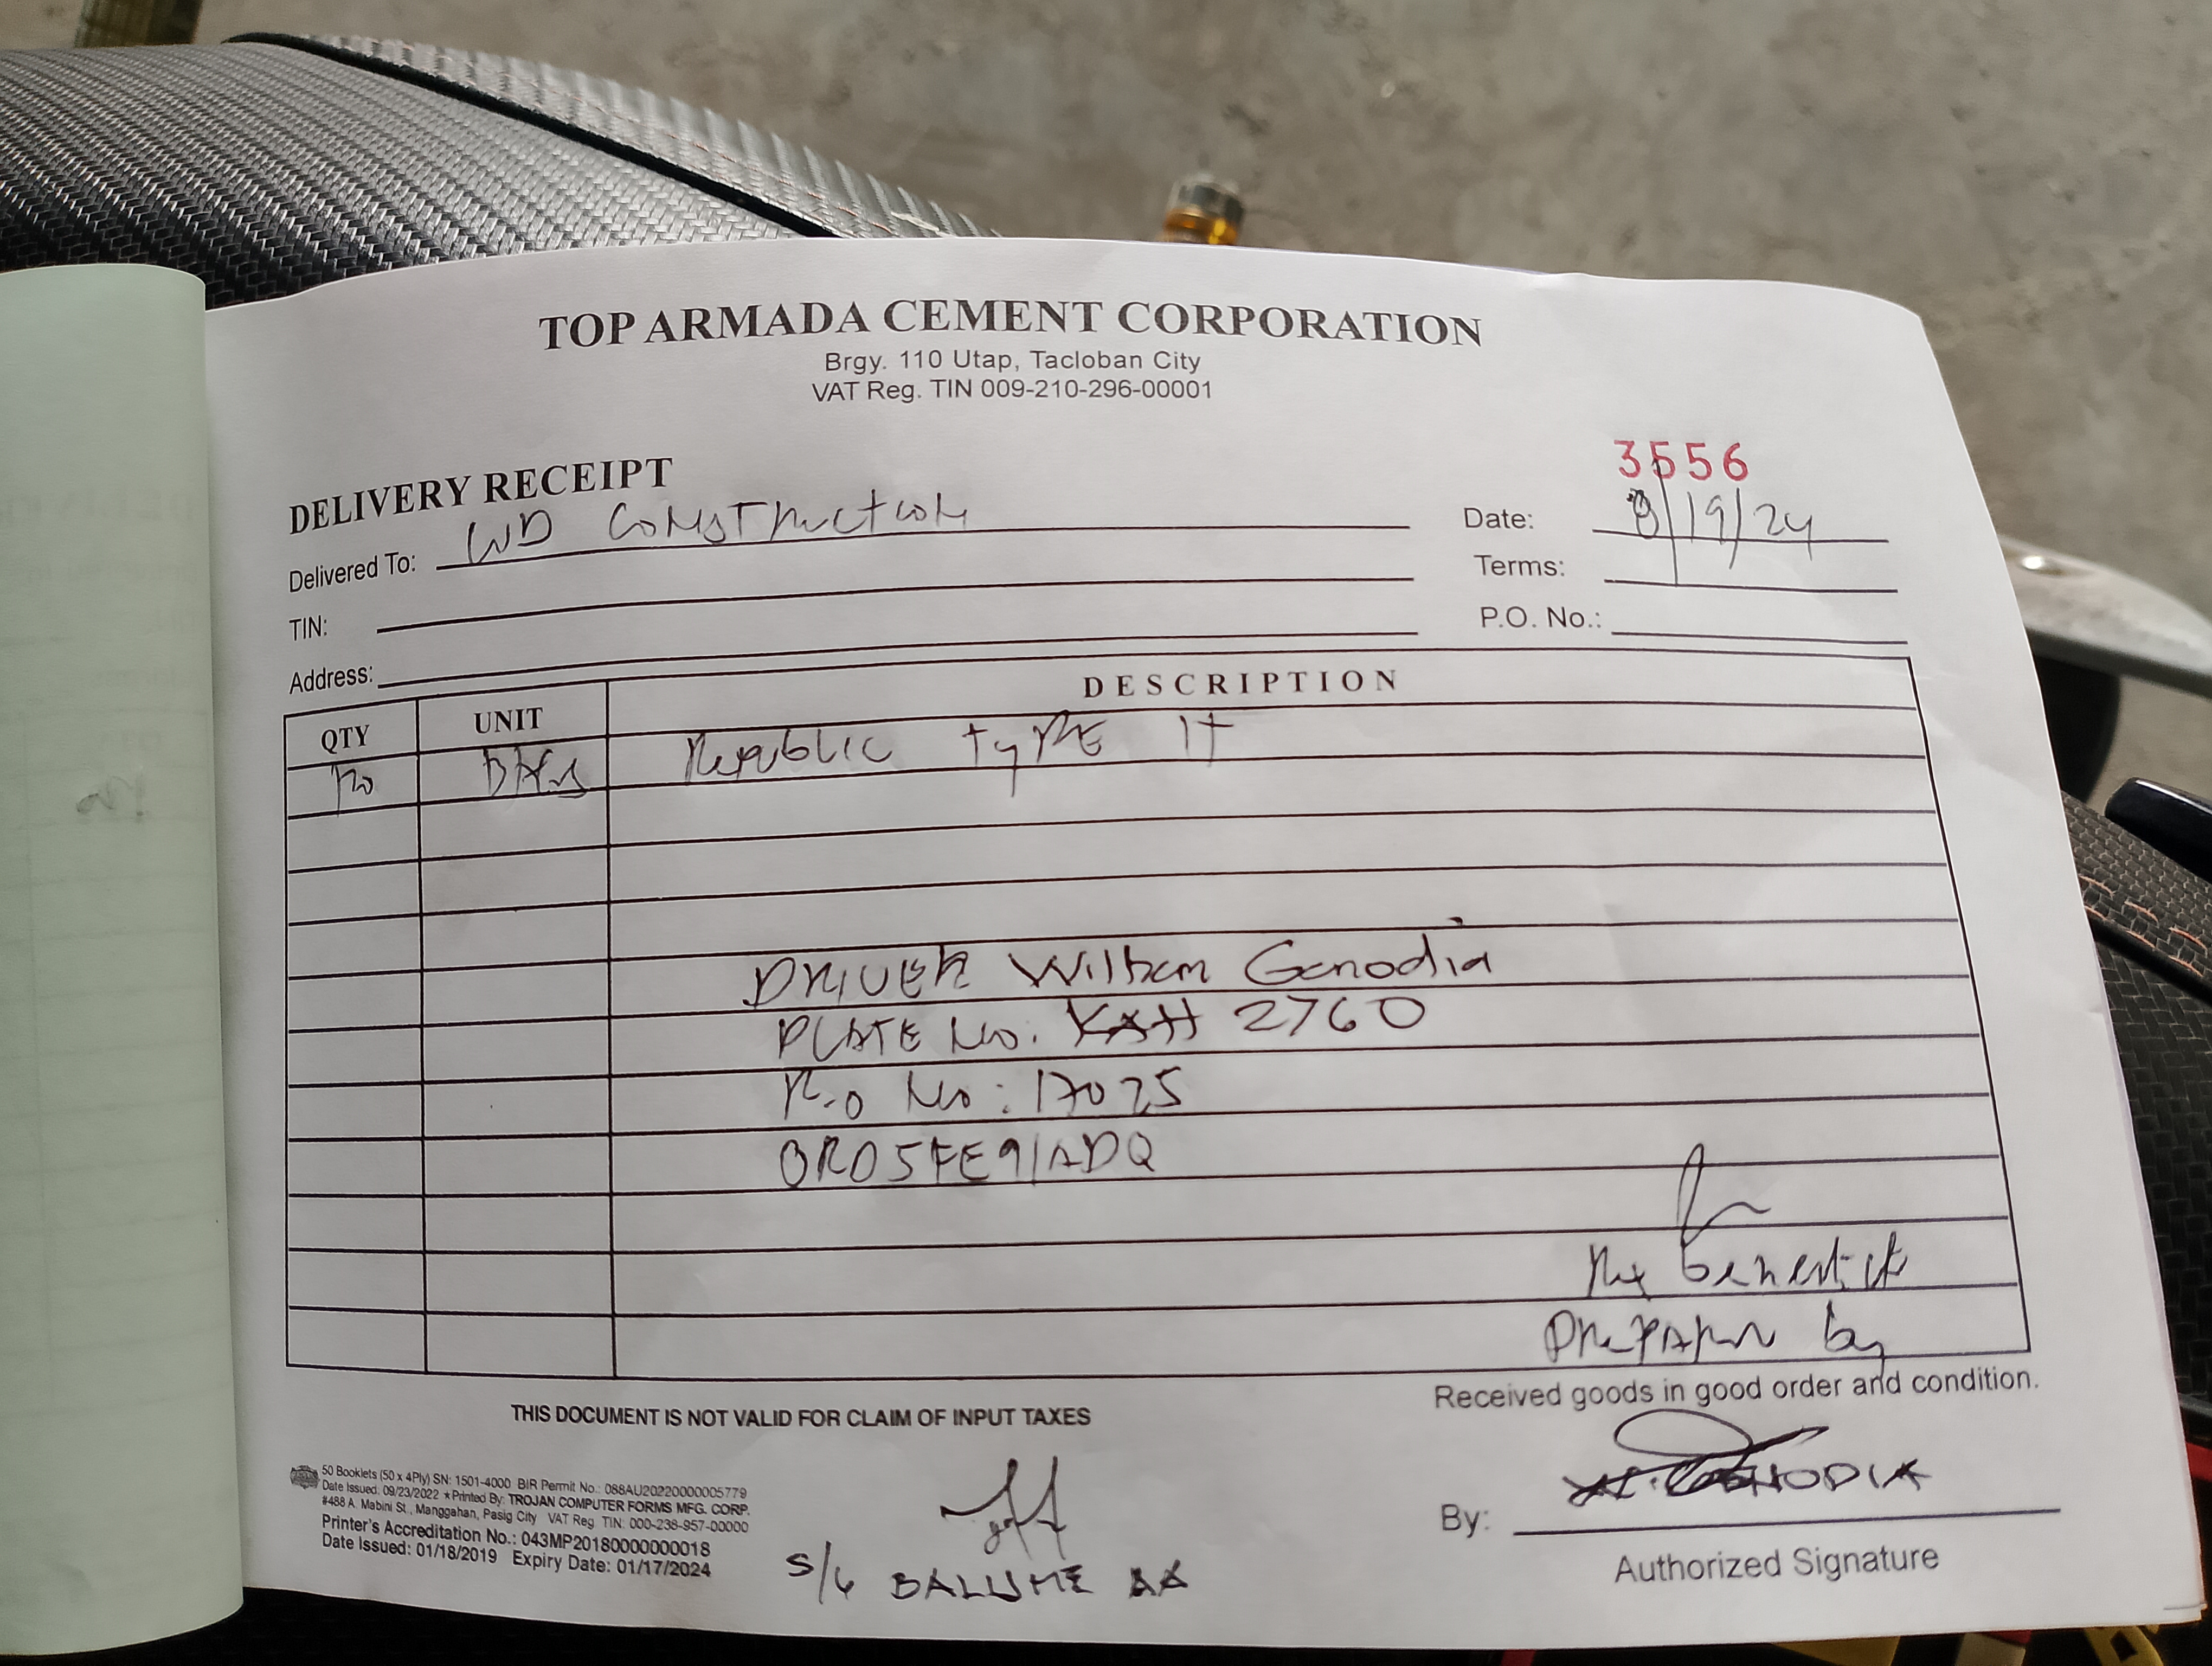 TOP ARMADA CEMENT CORPORATION
Brgy. 110 Utap, Tacloban City
VAT Reg. TIN 009-210-296-00001
3556
DELIVERY RECEIPT
Delivered To: WD Construction
Date: 8/19/24
TIN:
Terms:
Address:
P.O. No.:
QTY UNIT DESCRIPTION
BAGS Republic TYPE 1T
DRIVER Genodia
PLATE No. KAH 2760
No: 17025
ORD5FE91ADQ
Prepared by
Received goods in good order and condition.
THIS DOCUMENT IS NOT VALID FOR CLAIM OF INPUT TAXES
50 Booklets (50 x 4Ply) SN: 1501-4000 BIR Permit No.: 088AU20220000005779
Date Issued: 09/23/2022 ★ Printed By: TROJAN COMPUTER FORMS MFG. CORP.
#488 A. Mabini St., Manggahan, Pasig City VAT Reg. TIN: 000-238-957-00000
Printer's Accreditation No.: 043MP20180000000018
Date Issued: 01/18/2019 Expiry Date: 01/17/2024
By: GENODIA
Authorized Signature